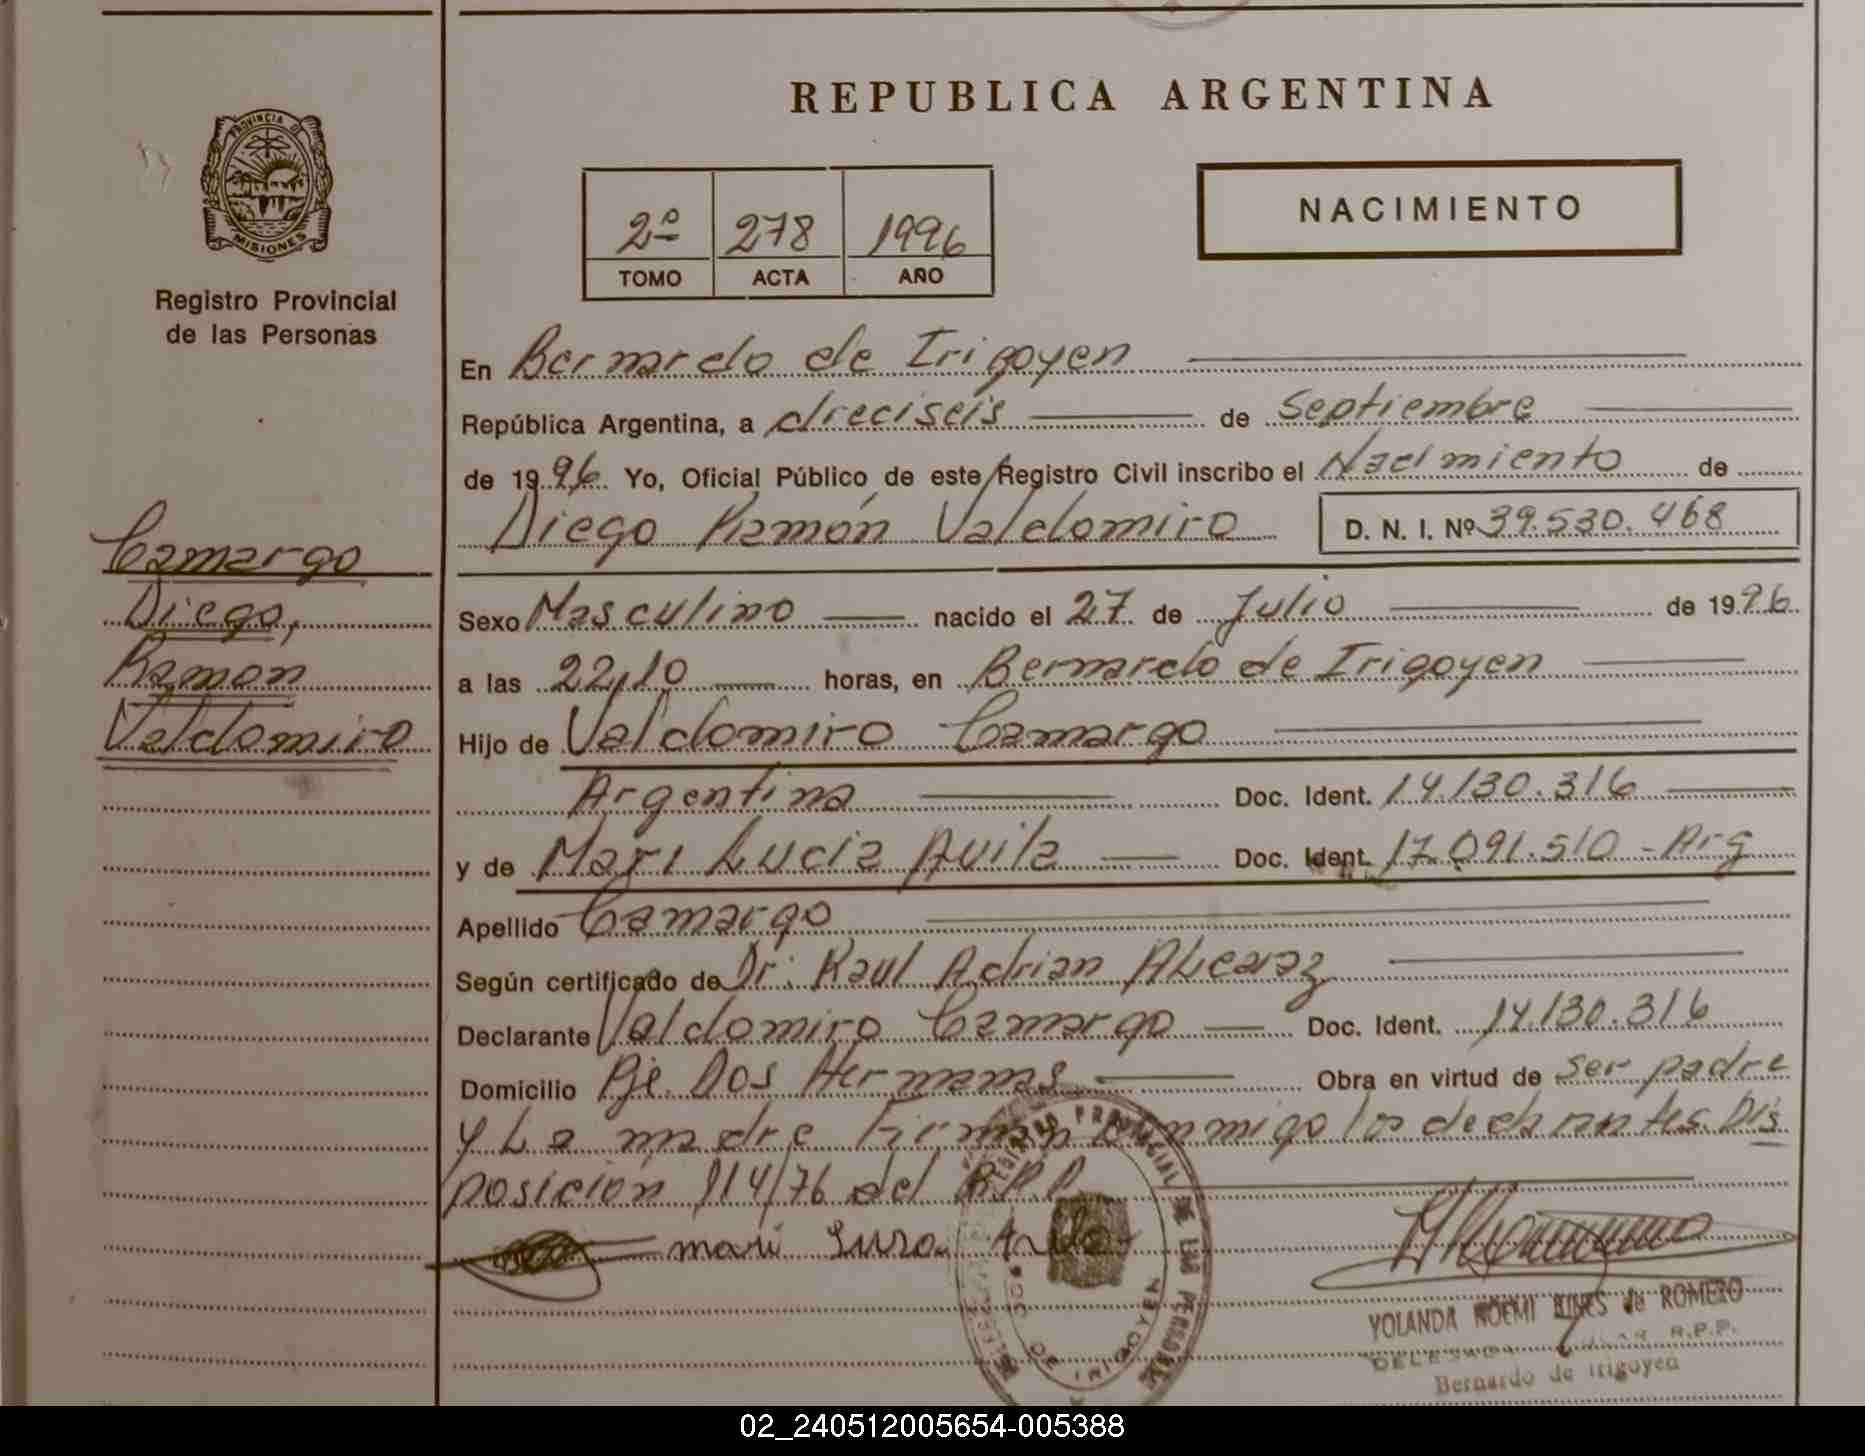 REPUBLICA ARGENTINA
PROVINCIA DE
MISIONES
Registro Provincial
de las Personas
2º 278 1996
TOMO ACTA AÑO
NACIMIENTO
En Bernardo de Irigoyen
República Argentina, a dieciseis de Septiembre
de 1996 Yo, Oficial Público de este Registro Civil inscribo el Nacimiento de
Diego Ramón Valdomiro D. N. I. Nº 39.530.468
Camargo
Diego,
Ramon
Valdomiro
Sexo Masculino nacido el 27 de Julio de 1996
a las 22,10 horas, en Bernardo de Irigoyen
Hijo de Valdomiro Camargo
Argentina Doc. Ident. 14.130.316
y de Mari Lucia Avila Doc. Ident. 17.091.510 - Arg
Apellido Camargo
Según certificado de Dr: Raul Adrian Alcaraz
Declarante Valdomiro Camargo Doc. Ident. 14.130.316
Domicilio Pje. Dos Hermanas Obra en virtud de ser padre
y La madre Firman conmigo los declarantes. Dis
posición 114/76 del R.P.P.
mari
REGISTRO PROVINCIAL DE LAS PERSONAS
DE IRIGOYEN
YOLANDA NOEMI de ROMERO
R.P.P.
Bernardo de Irigoyen
02_240512005654-005388